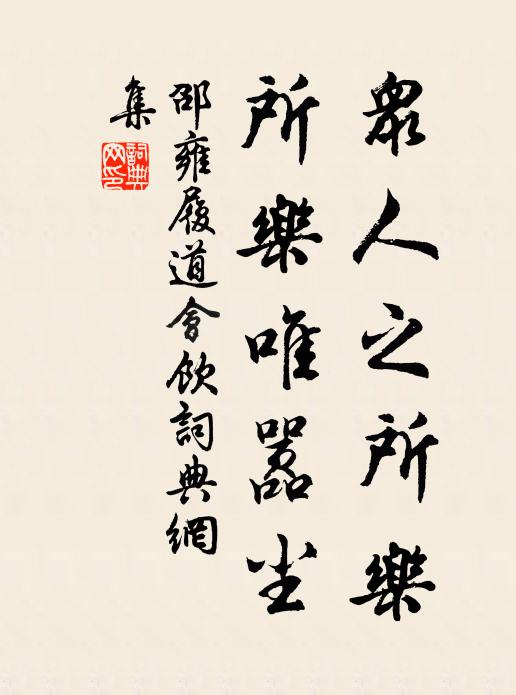 眾人之所樂
所樂唯嚣尘
邵雍履道會飲詞典網
集
詞典
网